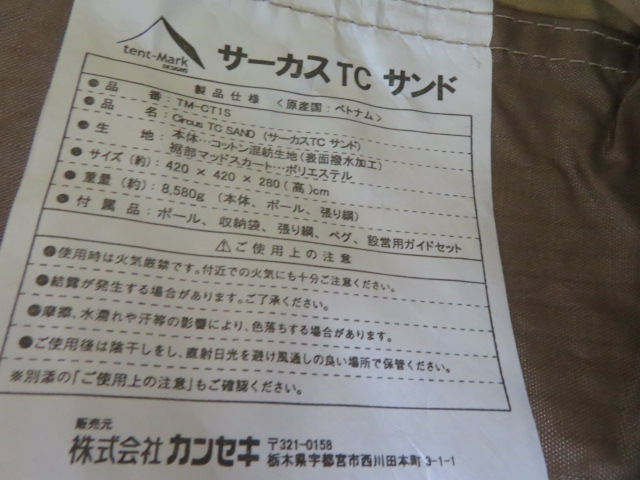 tent-Mark
DESIGNS
サーカスTC サンド
製品仕様 〈原産国：ベトナム〉
●品番：TM-CT1S
●品名：Circus TC SAND（サーカスTC サンド）
●生地：本体…コットン混紡生地（表面撥水加工）
裾部マッドスカート…ポリエステル
●サイズ（約）：420 × 420 × 280（高）cm
●重量（約）：8,580g（本体、ポール、張り綱）
●付属品：ポール、収納袋、張り綱、ペグ、設営用ガイドセット
⚠ご使用上の注意
●使用時は火気厳禁です。付近での火気にも十分ご注意ください。
●結露が発生する場合があります。ご了承ください。
●摩擦、水濡れや汗等の影響により、色落ちする場合があります。
●ご使用後は陰干しをし、直射日光を避け風通しの良い場所で保管ください。
※別添の「ご使用上の注意」もご確認ください。
販売元
株式会社 カンセキ 〒321-0158
栃木県宇都宮市西川田本町3-1-1